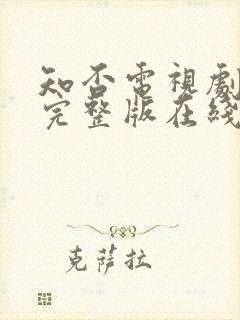 知否電視劇
完整版在綫
克薩拉